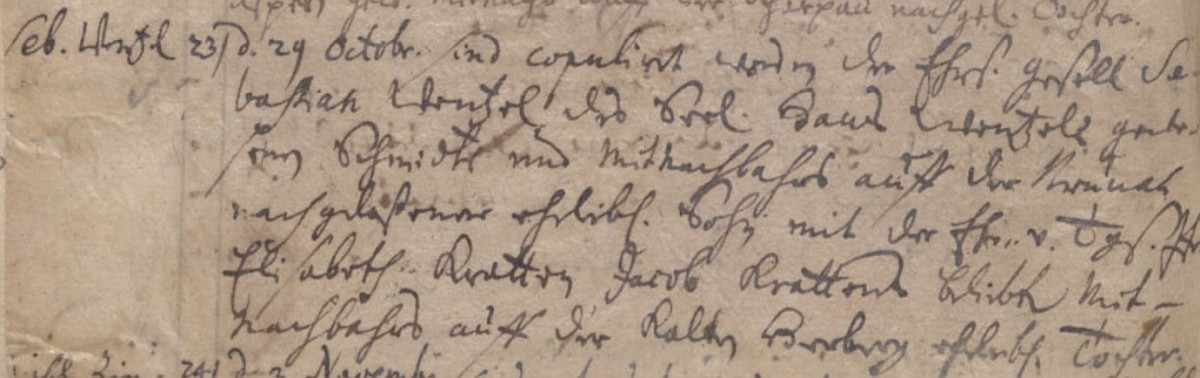 nachgel. Tochter.
Seb. Wentzel 23) d. 29 Octobr. sind copulirt worden der Ehrs. gesell Se-
bastian Wentzel des Seel. Hans Wentzels gewe-
senen Schmidts und Mitnachbahrs auff der
nachgelaßener ehelibl. Sohn mit der Ehr. v. Tgs. Jfr
Elisabeth Kratten Jacob Krattens Mit-
Nachbahrs auff der Kalten Herberg ehelibl. Tochter.
241 d. 3 Novembr.